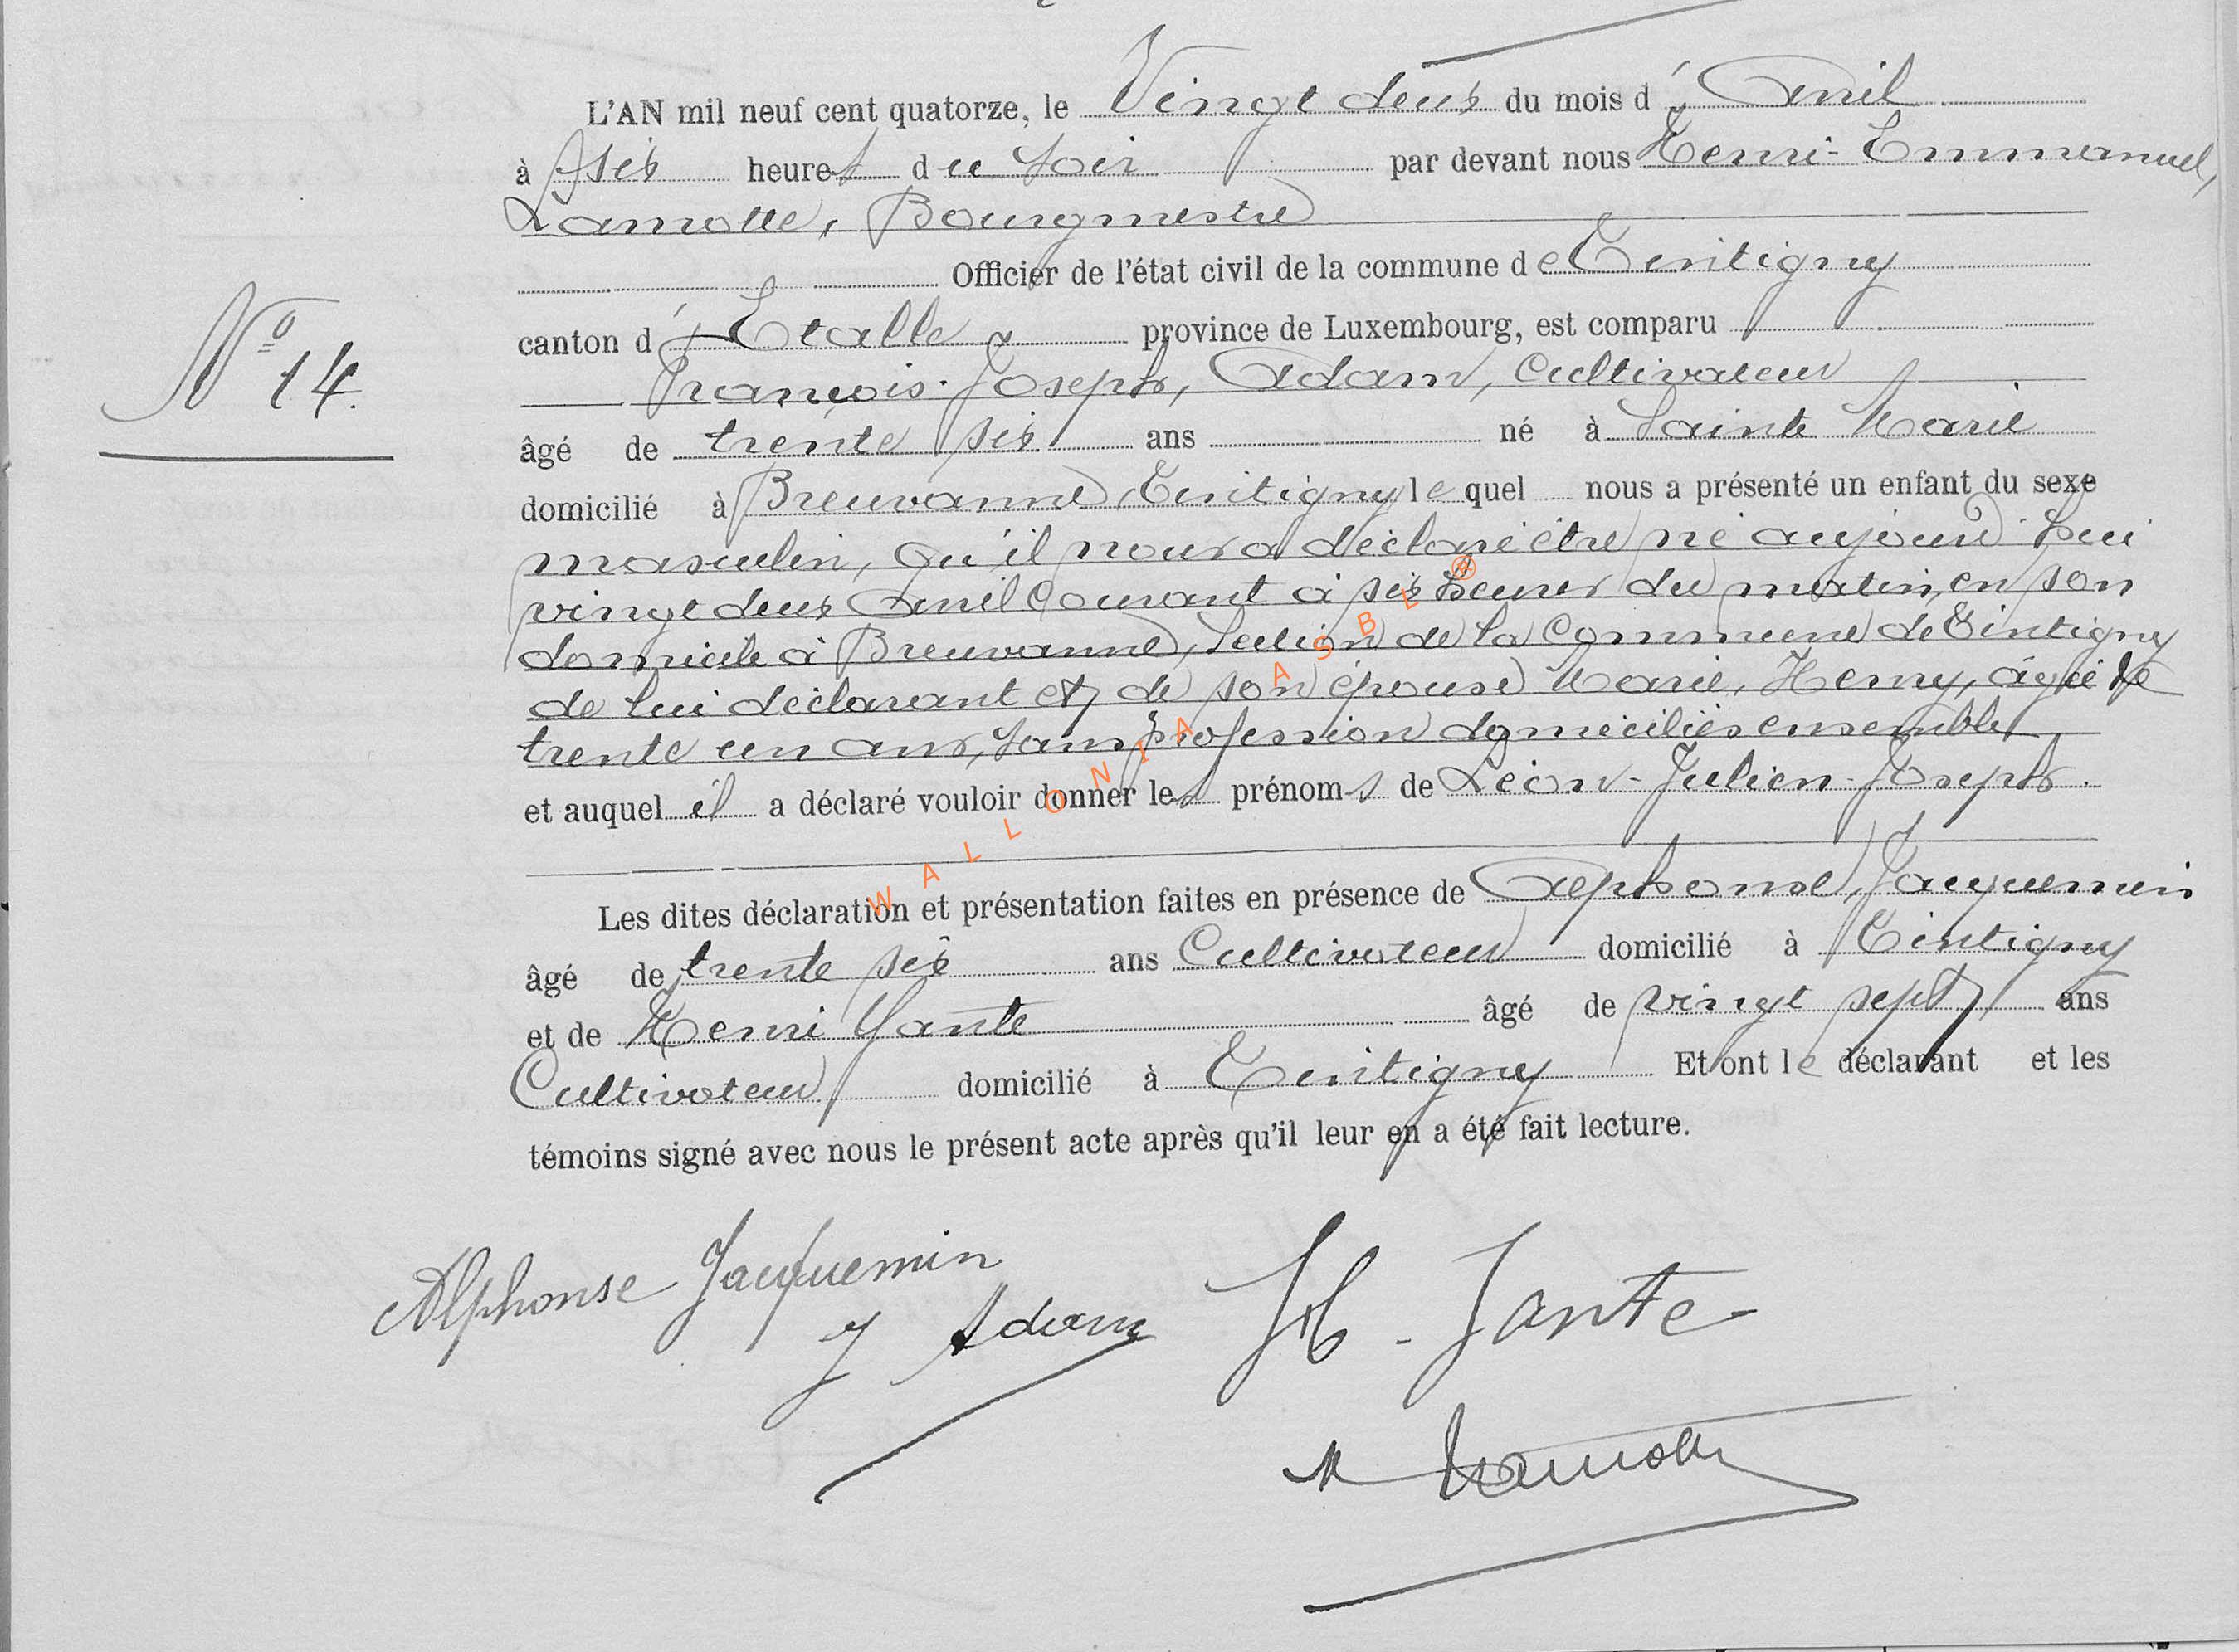 L'AN mil neuf cent quatorze, le Vingt deux du mois d'Avril
à six heures du soir par devant nous Henri-Emmanuel,
Lamotte, Bourgmestre
Officier de l'état civil de la commune de Tintigny
canton d'Etalle province de Luxembourg, est comparu
François-Joseph, Adam, Cultivateur
âgé de trente six ans né à Sainte Marie
domicilié à Breuvanne, Tintigny lequel nous a présenté un enfant du sexe
masculin, qu'il nous a déclaré être né aujourd'hui
vingt deux avril courant à six heures du matin, en son
N° 14.
domicile à Breuvanne, section de la commune de Tintigny
de lui déclarant et de son épouse Marie, Henry, âgée de
trente un ans, sans profession domiciliés ensemble
et auquel il a déclaré vouloir donner les prénoms de Léon-Julien-Joseph.
Les dites déclaration et présentation faites en présence de Alphonse, Jacquemin
âgé de trente six ans Cultivateur domicilié à Tintigny
et de Henri Jante âgé de vingt sept ans
Cultivateur domicilié à Tintigny Et ont le déclarant et les
témoins signé avec nous le présent acte après qu'il leur en a été fait lecture.
Alphonse Jacquemin
J Adam
H - Jante
H Lamotte
WALLONIA ASBL ®